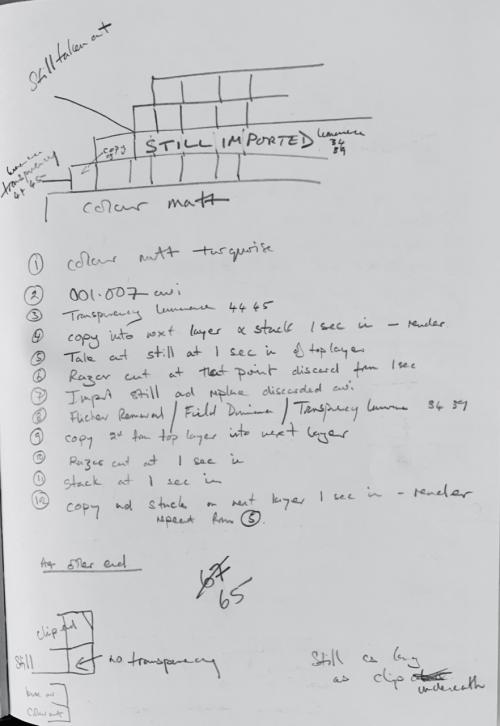 Still taken out
copy
STILL IMPORTED
Luminance
34
39
transparency
44 45
Colour matt
① colour matt turquoise
② 001.007 avi
③ Transparency Luminance 44 45
④ copy into next layer & stack 1 sec in - render
⑤ Take out still at 1 sec in of top layer
⑥ Razor cut at that point discard from 1 sec
⑦ Import still and replace discarded avi
⑧ Flicker Removal / Field Dominance / Transparency Luminance 34 39
⑨ copy from top layer into next layer
⑩ Razor cut at 1 sec in
⑪ stack at 1 sec in
⑫ copy and stack on next layer 1 sec in - render
repeat from ⑤.
At other end
67
65
clip
Still
no transparency
Still as long
as clip
underneath